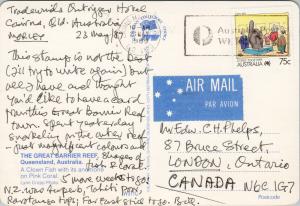 Tradewinds Outrigger Hotel
Cairns, Qld. Australia
MORLEY 23 May '87
This stamp is not the best
(I'll try to write again) but
all I have and thought
you'd like to have a card
from this Great Barrier Reef
Town. Spent yesterday
snorkeling in the outer reef
THE GREAT BARRIER REEF,
Queensland, Australia.
A Clown Fish with its anemone
on Pink Coral.
fish & coral.
5 more weeks to go.
N.Z. was superb, Tahiti
Rarotonga tops; Far East still to go. Bell.
AUSTRALIA
75c
AIR MAIL
PAR AVION
Mr Edw. C.H. Phelps,
87 Bruce Street,
LONDON, Ontario
CANADA N6C 1G7
Postcode